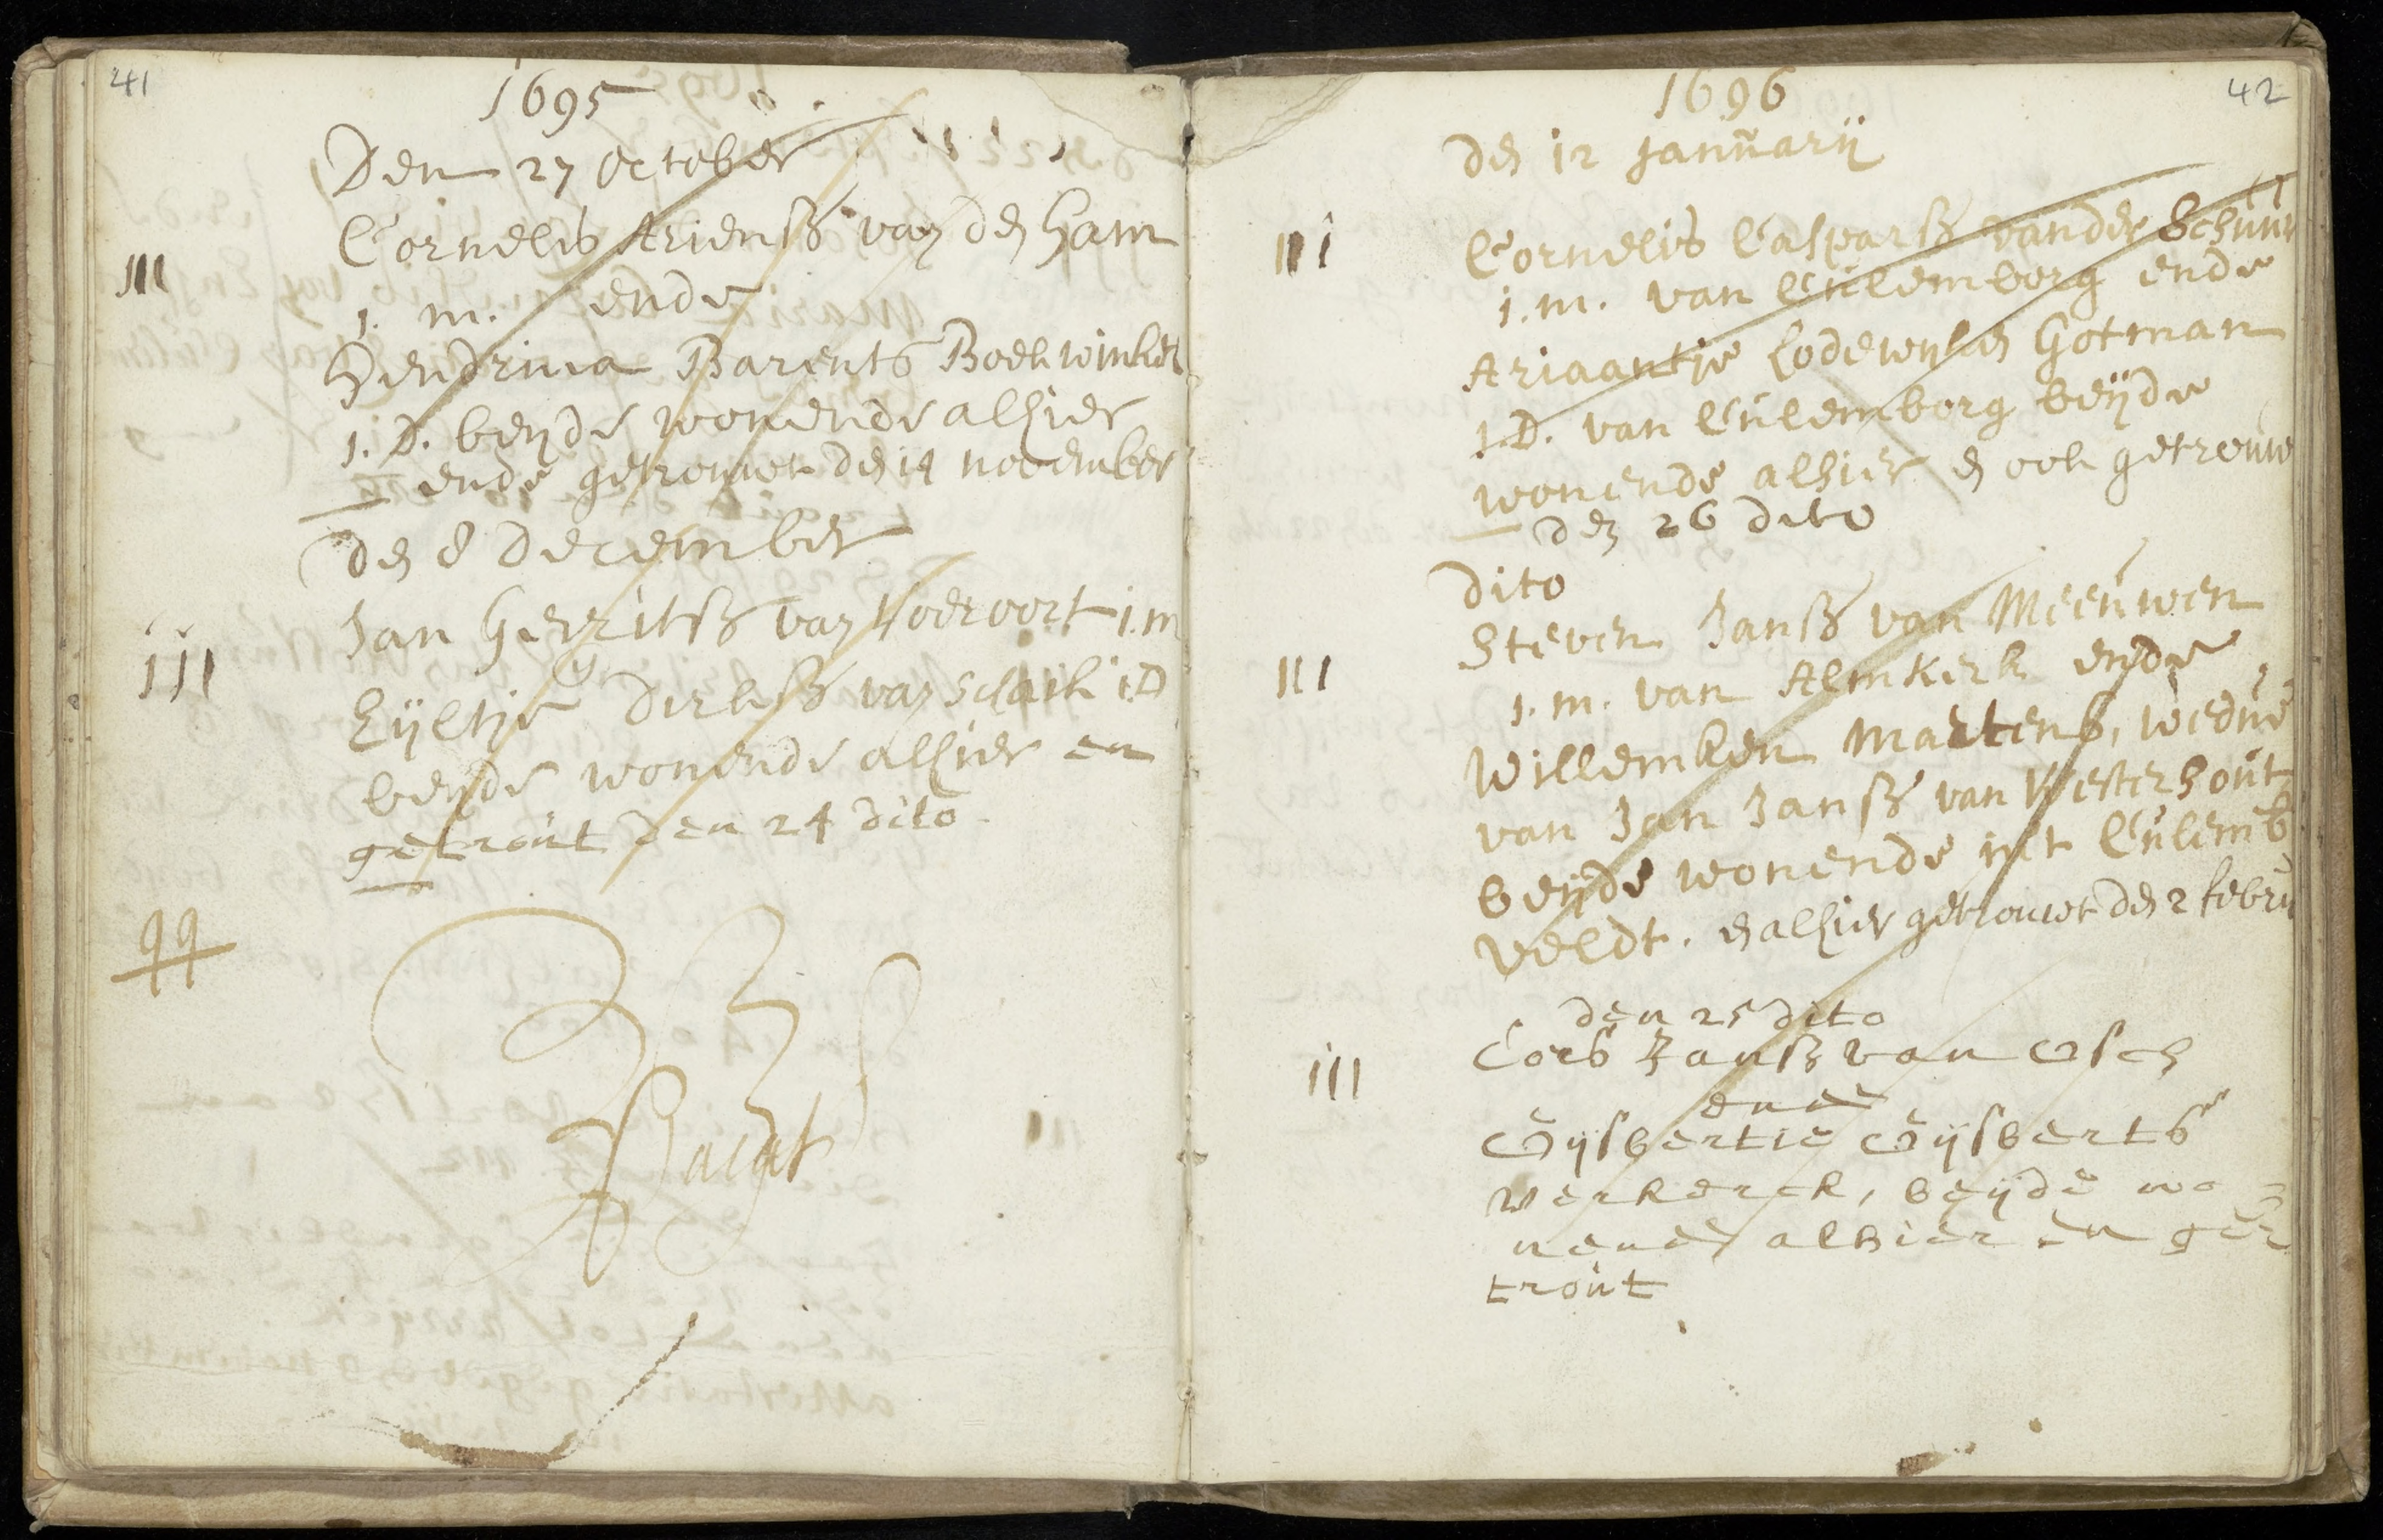 41
1695
Den 27 October
Cornelis Ariensß van den Ham
III
j. m. ende
Hendrina Barents Boekwinkel
j. D. beyde wonende alhier
ende getrouwt den 14 november
den 8 December
Jan Gerritsß van Voorvoort j.m
III
Eijltje Dirksß van Schaik j.D
beyde wonende alhier en
getrout den 24 dito
99
42
1696
den 12 Januarij
Cornelis Casparsß vander Schuur
III
j.m. van Culemborg ende
Ariaantje Lodewyks Gotman
j.D. van Culemborg beijde
wonende alhier en ook getrouw
den 26 dito
dito
Steven Jansß van Meeuwen
III
j.m. van Almkerk ende
Willemken Martens, wedue
van Jan Jansß van Westerhout
beijde wonende int Culemb
veldt. en alhier getrouwt den 2 febru
den 25 dito
Cors Jansß van Osch
III
ende
Gijsbertie Gijsberts
Verkerck, beijde wo=
nende alhier en ge=
trout